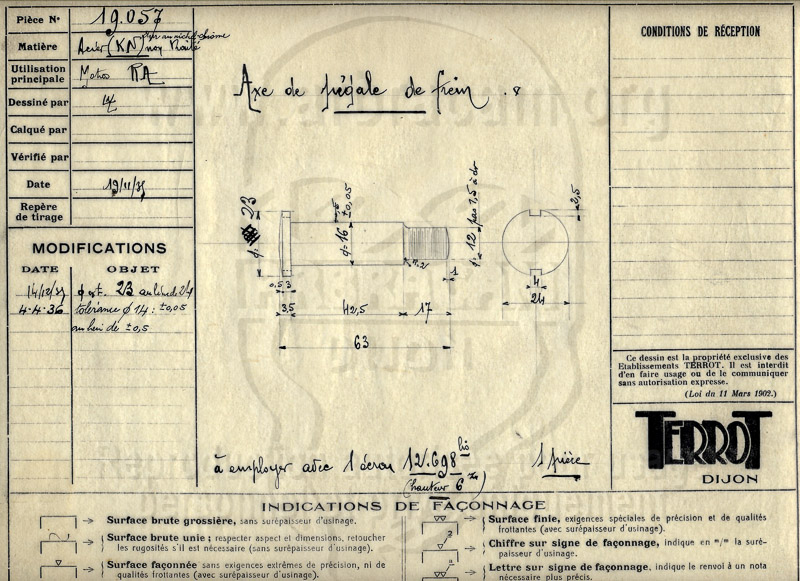 Pièce N° 19.057
Matière Acier (KN)
Utilisation principale Motos RA
Dessiné par
Calqué par
Vérifié par
Date 19/11/35
Repère de tirage
MODIFICATIONS
DATE OBJET
14/12/35 φ est 23 au lieu de 24
4-4-36 tolérance φ 14 : ±0,05
au lieu de ±0,5
Axe de pédale de frein
φ 23
φ=16 ±0,05
φ=12 pas 1,5 à dr
2,5
1
0,5 3
3,5 42,5 17
63
4
24
à employer avec 1 écrou 12.698
(hauteur 6
1 pièce
CONDITIONS DE RÉCEPTION
Ce dessin est la propriété exclusive des
Etablissements TERROT. Il est interdit
d'en faire usage ou de le communiquer
sans autorisation expresse.
(Loi du 11 Mars 1902.)
TERROT
DIJON
INDICATIONS DE FAÇONNAGE
Surface brute grossière, sans surépaisseur d'usinage.
Surface brute unie : respecter aspect et dimensions, retoucher
les rugosités s'il est nécessaire (sans surépaisseur d'usinage).
Surface façonnée sans exigences extrêmes de précision, ni de
qualités frottantes (avec surépaisseur d'usinage).
Surface finie, exigences spéciales de précision et de qualités
frottantes (avec surépaisseur d'usinage).
Chiffre sur signe de façonnage, indique en m/m la suré-
paisseur d'usinage.
Lettre sur signe de façonnage, indique le renvoi à un nota
nécessaire plus précis.